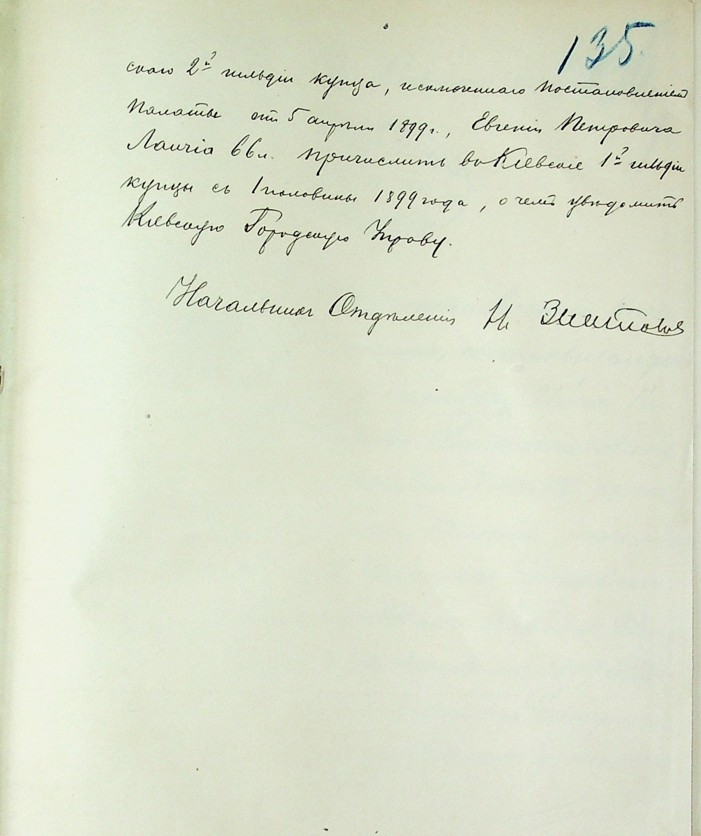 135.
скаго 2й гильдіи купца, исключеннаго постановленіемъ
Палаты отъ 5 апрѣля 1899 г., Евгенія Петровича
66 л. причислить въ Кіевскіе 1й гильдіи
купцы съ 1 половины 1899 года, о чемъ увѣдомить
Кіевскую Городскую Управу.
Начальникъ Отдѣленія Н.